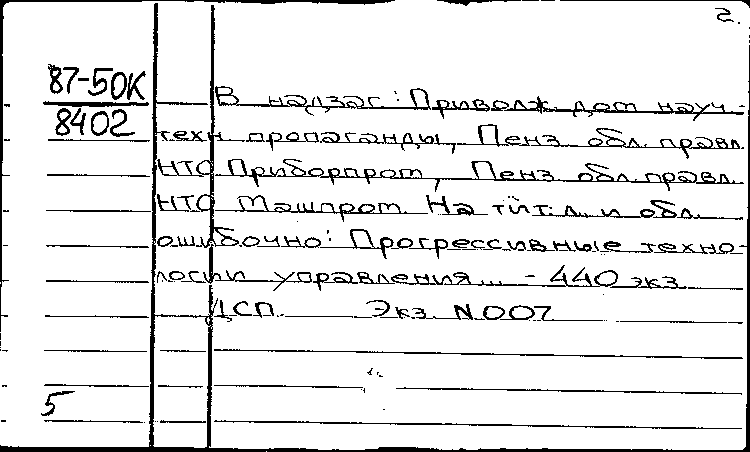 2.
87-50К
8402
В надзаг: Приволж. дом науч.-
техн пропаганды, Пенз обл. правл.
НТО Приборпром, Пенз. обл. правл.
НТО Машпром. На тит. л. и обл.
ошибочно: Прогрессивные техно-
логии управления... - 440 экз.
ДСП. Экз. N 007
5